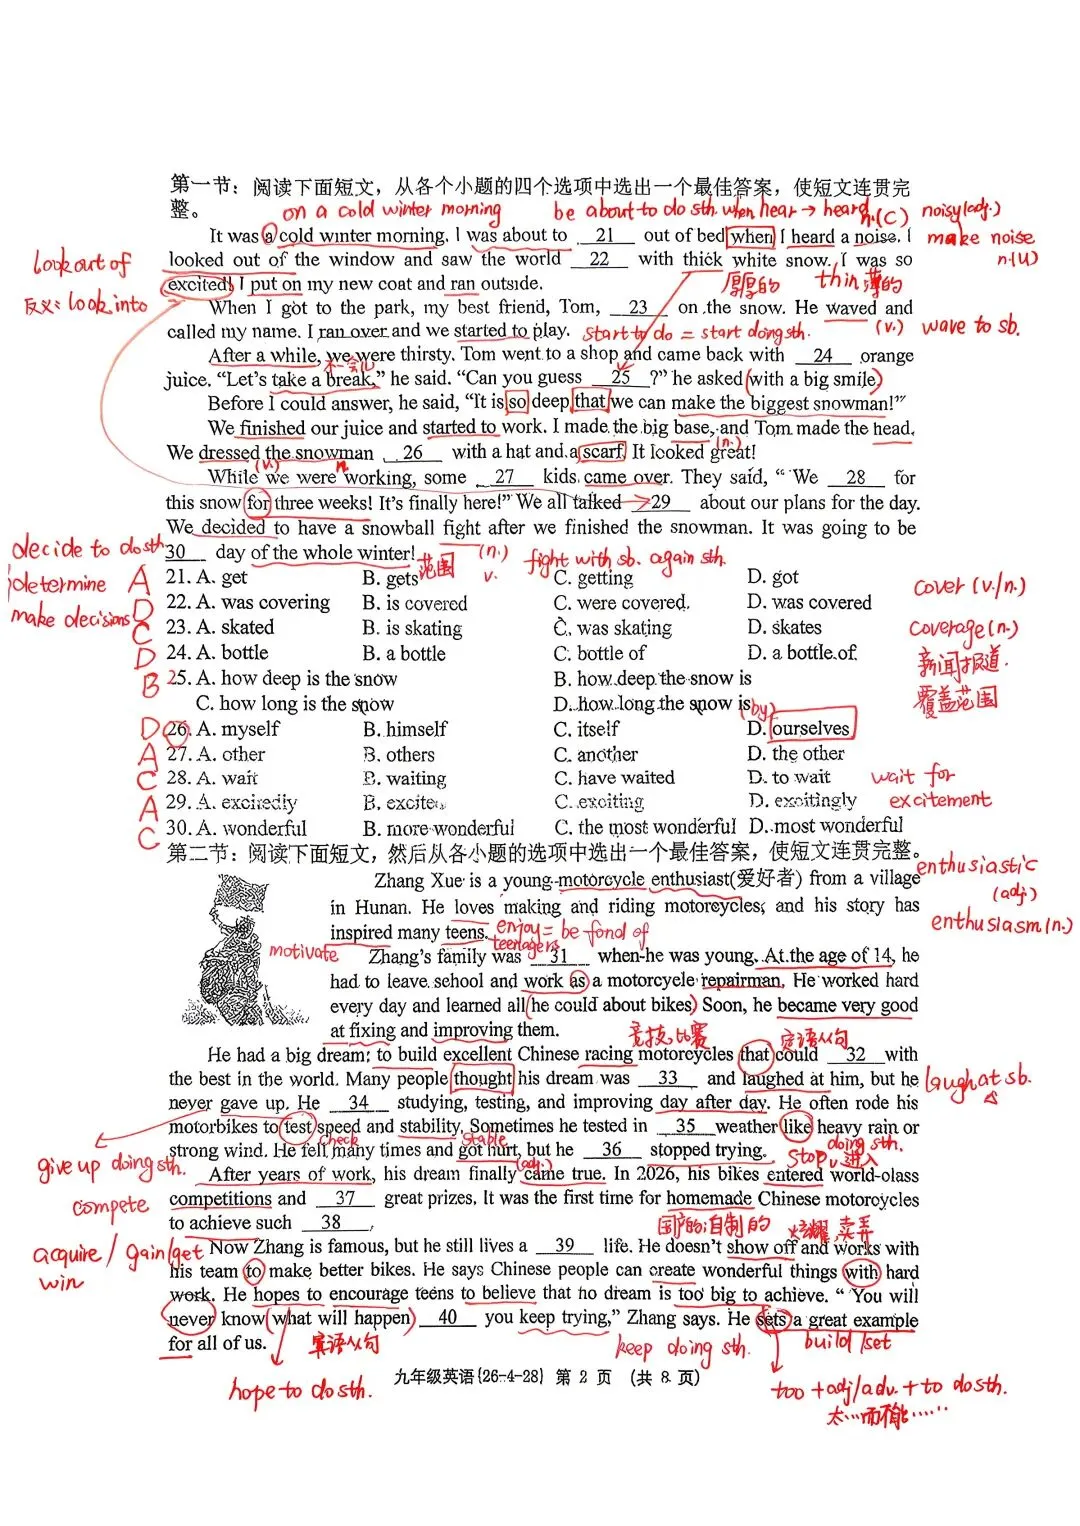 第一节：阅读下面短文，从各个小题的四个选项中选出一个最佳答案，使短文连贯完
整。
on a cold winter morning be about to do sth. when hear → heard n.(C) noisy(adj.)
It was a cold winter morning. I was about to 21 out of bed when I heard a noise. I
make noise
n.(U)
look out of
looked out of the window and saw the world 22 with thick white snow. I was so
反义: look into
excited! I put on my new coat and ran outside.
厚的 thin 薄的
When I got to the park, my best friend, Tom, 23 on the snow. He waved and
called my name. I ran over and we started to play.
start to do = start doing sth. (v.) wave to sb.
After a while, we were thirsty. Tom went to a shop and came back with 24 orange
不一会儿
juice. “Let's take a break,” he said. “Can you guess 25 ?” he asked (with a big smile)
Before I could answer, he said, “It is so deep that we can make the biggest snowman!”
We finished our juice and started to work. I made the big base, and Tom made the head.
We dressed the snowman 26 with a hat and a scarf. It looked great!
(v.) n. (n.)
While we were working, some 27 kids came over. They said, “ We 28 for
this snow for three weeks! It's finally here!” We all talked 29 about our plans for the day.
We decided to have a snowball fight after we finished the snowman. It was going to be
decide to do sth.
30 day of the whole winter!
范围 (n.) v. fight with sb. again sth.
determine
make decisions
A 21. A. get B. gets C. getting D. got
cover (v./n.)
D 22. A. was covering B. is covered C. were covered. D. was covered
C 23. A. skated B. is skating C. was skating D. skates
coverage(n.)
D 24. A. bottle B. a bottle C. bottle of D. a bottle of
新闻报道.
B 25. A. how deep is the snow B. how deep the snow is
覆盖范围
C. how long is the snow D. how long the snow is
(by)
D 26. A. myself B. himself C. itself D. ourselves
A 27. A. other B. others C. another D. the other
C 28. A. wait B. waiting C. have waited D. to wait
wait for
A 29. A. excitedly B. excited C. exciting D. excitingly
excitement
C 30. A. wonderful B. more wonderful C. the most wonderful D. most wonderful
第二节：阅读下面短文，然后从各小题的选项中选出一个最佳答案，使短文连贯完整。
enthusiastic
(adj)
Zhang Xue is a young motorcycle enthusiast(爱好者) from a village
in Hunan. He loves making and riding motorcycles, and his story has
enthusiasm(n.)
inspired many teens.
enjoy = be fond of
teenagers
motivate
Zhang's family was 31 when he was young. At the age of 14, he
had to leave school and work as a motorcycle repairman. He worked hard
every day and learned all (he could about bikes) Soon, he became very good
at fixing and improving them.
竞技,比赛 定语从句
He had a big dream: to build excellent Chinese racing motorcycles that could 32 with
the best in the world. Many people thought his dream was 33 and laughed at him, but he
laugh at sb.
never gave up. He 34 studying, testing, and improving day after day. He often rode his
motorbikes to test speed and stability. Sometimes he tested in 35 weather like heavy rain or
check stable doing sth.
strong wind. He fell many times and got hurt, but he 36 stopped trying.
stop
give up doing sth.
(adj.) v. 进入
After years of work, his dream finally came true. In 2026, his bikes entered world-class
compete
competitions and 37 great prizes. It was the first time for homemade Chinese motorcycles
to achieve such 38 .
国产的;自制的 炫耀,卖弄
acquire / gain/get
win
Now Zhang is famous, but he still lives a 39 life. He doesn't show off and works with
his team to make better bikes. He says Chinese people can create wonderful things with hard
work. He hopes to encourage teens to believe that no dream is too big to achieve. “ You will
never know (what will happen) 40 you keep trying,” Zhang says. He sets a great example
for all of us.
宾语从句 keep doing sth. build /set
九年级英语{26-4-28} 第 2 页 (共 8 页)
hope to do sth.
too +adj/adv. + to do sth.
太……而不能……